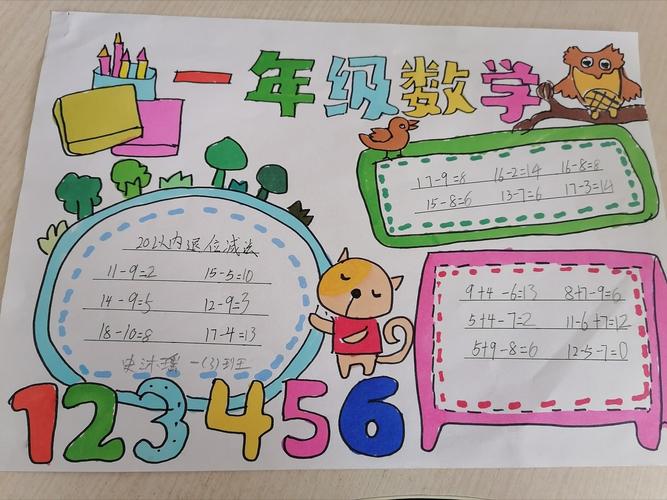 一年级数学
17-9=8 16-2=14 16-8=8
15-8=6 13-7=6 17-3=14
20以内退位减法
11-9=2 15-5=10
14-9=5 12-9=3
18-10=8 17-4=13
史沐瑶 一(3)班
9+4-6=13 8+7-9=6
5+4-7=2 11-6+7=12
5+9-8=6 12-5-7=0
123456